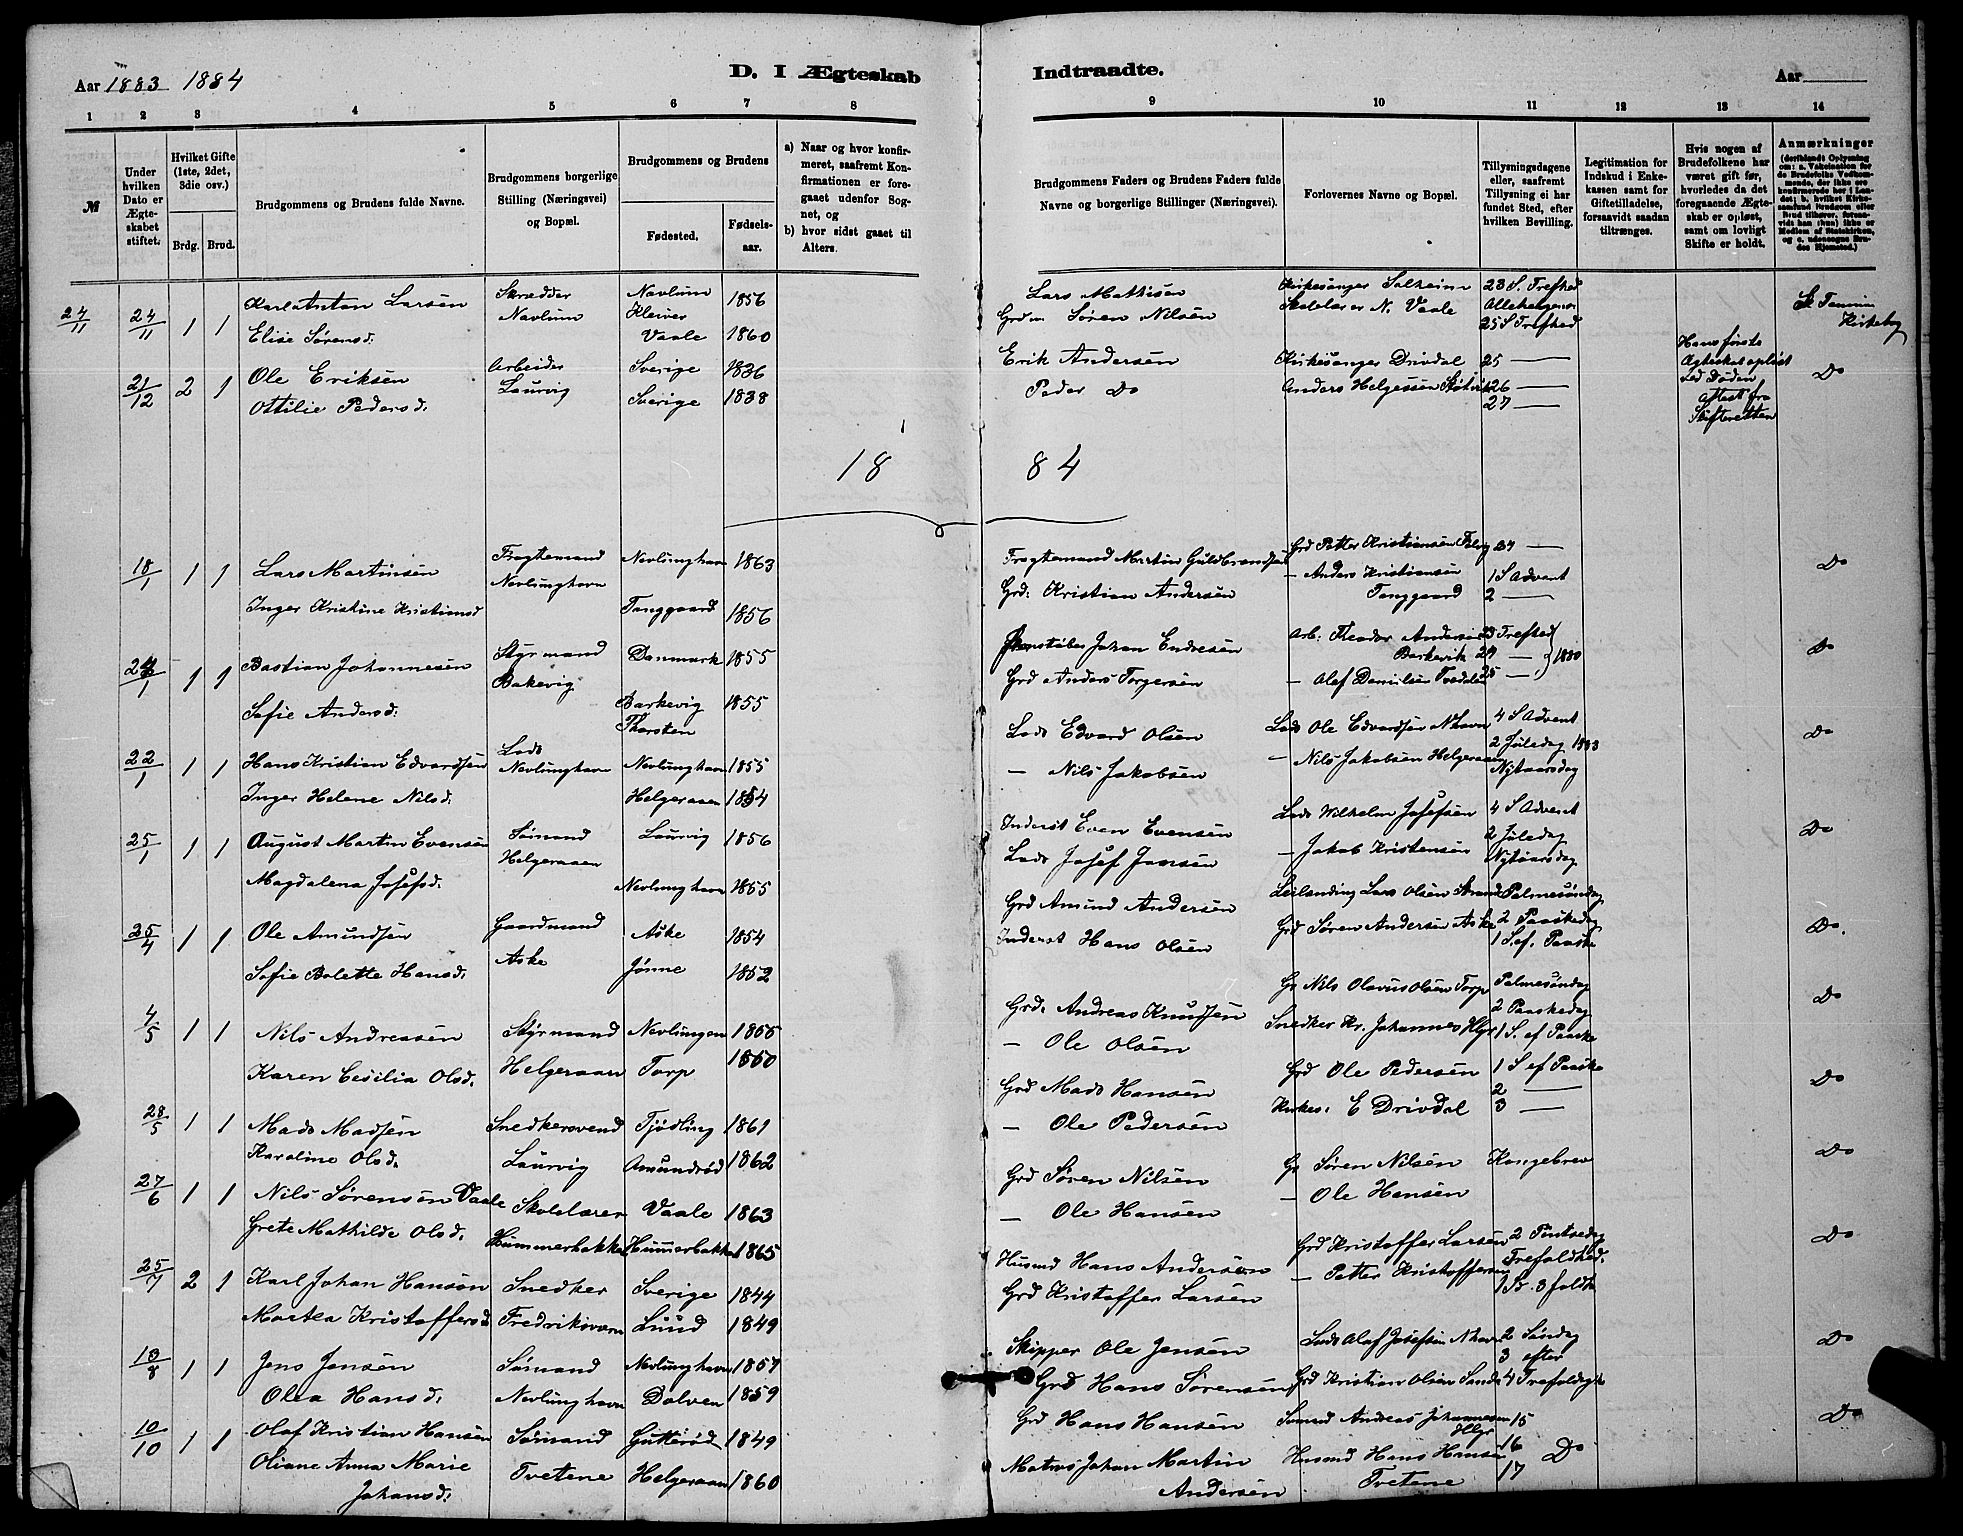 Aar 1883 1884
D. I Ægteskab
Indtraadte.
Aar
1 2 3 4 5 6 7 8
9 10 11 12 13 14
№
Under hvilken Dato er Ægteskabet stiftet.
Hvilket Gifte (1ste, 2det, 3die osv.)
Brdg. Brud.
Brudgommens og Brudens fulde Navne.
Brudgommens borgerlige Stilling (Næringsvei) og Bopæl.
Brudgommens og Brudens
Fødested. Fødselsaar.
a) Naar og hvor konfirmeret, saafremt Konfirmationen er foregaaet udenfor Sognet, og
b) hvor sidst gaaet til Alters.
Brudgommens Faders og Brudens Faders fulde Navne og borgerlige Stillinger (Næringsvei).
Forlovernes Navne og Bopæl.
Tillysningsdagene eller, saafremt Tillysning ei har fundet Sted, efter hvilken Bevilling.
Legitimation for Indskud i Enkekassen samt for Giftetilladelse, forsaavidt saadan tiltrænges.
Hvis nogen af Brudefolkene har været gift før, hvorledes da det foregaaende Ægteskab er opløst, samt om lovligt Skifte er holdt.
Anmærkninger
24/11 24/11 1 1 Karl Anton Larsen Skrædder Navlum 1856 Lars Mathisen Kirkesanger Solheim 23 S Trefhed
Navlum Klever Skolelærer N. Vaale Allehelgens
Elise Sørensd. Vaale 1860 Grdm. Søren Nilsen 25 S Trefhed Kirkebog
21/12 2 1 Ole Eriksen Arbeider Sverige 1836 Erik Andersen Kirkesanger Drivdal 25 — Hans første Do
Ottilie Pedersd. Laurvig Sverige 1838 Peder Do Anders Helgessen 26 — Ægteskab opløst
27 — ved Døden
Attest fra
Skifteretten
1884
18/1 1 1 Lars Martinsen Fragtemand Nevlunghavn 1863 Fragtemand Martin Guldbrandsen Grd Petter Kristiansen 27 — Do
Inger Kristine Kristiansd Nevlunghavn Tanggaard 1856 Grd. Kristian Andersen — Anders Kristiansen 1 S Advent
Tanggaard 2 —
1 1 Bastian Johannesen Styrmand Danmark 1855 Johan Endresen Arb: Theodor Andersen Trefhed Do
Barkevik — 1880
Sofie Andersd. Bakevig Barkevig 1855 Grd Anders Torgersen — Olaf Danielsen 25 —
Thorsten
22/1 1 1 Hans Kristian Edvardsen Lods Nevlunghavn 1855 Lods Edvard Olsen Lods Ole Edvardsen Nhavn 4 S Advent Do
Nevlunghavn 2 Juledag 1883
Inger Helene Nilsd. Helgeraaen 1854 — Nils Jakobsen — Nils Jakobsen Helgeraaen Nytaarsdag
25/1 1 1 August Martin Evensen Sømand Laurvig 1856 Inderst Even Evensen Lods Wilhelm Josefsen 4 S Advent Do
Helgeraaen 2 Juledag
Magdalena Josefsd. Nevlunghavn 1855 Lods Josef Jansen — Jakob Kristensen Nytaarsdag
25/4 1 1 Ole Amundsen Gaardmand Aske 1854 Grd Amund Andersen Leilending Lars Olsen Strand Palmesøndag Do.
2 Paaskedag
Sofie Bolette Hansd. Aske Jønne 1852 Inderst Hans Olsen Grd Søren Andersen Aske 1 S. ef. Paaske
4/5 1 1 Nils Andreasen Styrmand Nevlungen 1855 Grd. Andreas Knudsen Gr Nils Olavus Olsen Torp Palmesøndag Do
2 Paaskedag
Karen Cesilia Olsd. Helgeraaen Torp 1860 — Ole Olsen Snedker Kr. Johannes Hgr 1 S. ef Paaske
28/5 1 1 Mads Madsen Snedkersvend Tjødling 1861 Grd Mads Hansen Grd Ole Pedersen 1 S ef Paaske Do
2 —
Karoline Olsd. Laurvig Amundrød 1862 — Ole Pedersen Kirkes. E Drivdal 3 —
27/6 1 1 Nils Sørensen Vaale Skolelærer Vaale 1863 Grd Søren Nilsen Gr Søren Nilsen Kongebrev Do
Grete Mathilde Olsd. Hummerbakken Hummerbakken 1865 — Ole Hansen — Ole Hansen
25/7 2 1 Karl Johan Hanson Snedker Sverige 1844 Husmd Hans Anderson Grd Kristoffer Larsen 2 Pintsedag Do
Trefoldhed.
Martea Kristoffersd Fredriksværn Lund 1849 Grd Kristoffer Larsen — Petter Kristoffersen 1 S.
13/8 1 1 Jens Jensen Sømand Nevlunghavn 1857 Skipper Ole Jensen Lods Olaf Josefsen Nhavn 2 Søndag Do
3 efter
Olea Hansd. Nevlunghavn Dolven 1859 Grd Hans Sørensen Grd Kristian Olsen Sande 4 Trefoldighe
10/10 1 1 Olaf Kristian Hansen Sømand Gutterød 1849 Grd Hans Hansen Sømand Andreas Johannesen 15 Do
Hlgr 16 Do
Oliane Anna Marie Tvetene Helgeraaen 1860 Matros Johan Martin Husmd Hans Hansen 17
Johansd. Andersen Tvetene